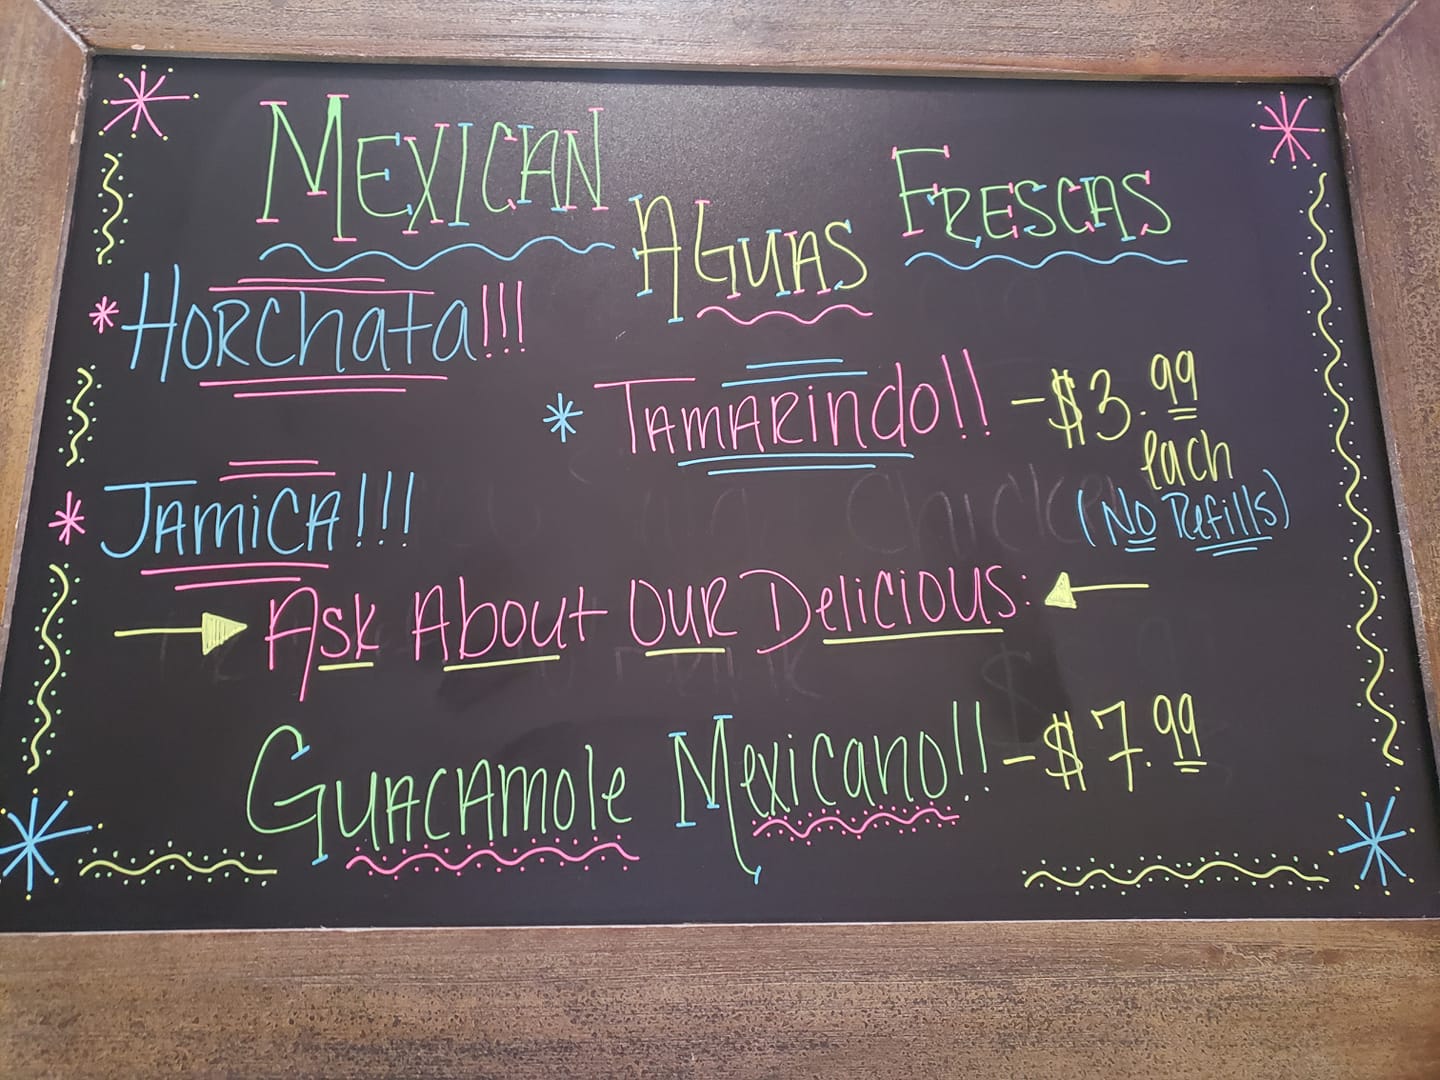 MEXICAN AGUAS FRESCAS
* HORChata!!!
* TAMARindo!! - $3.99
each
* JAMiCA!!! (No Refills)
Ask About OUR Delicious:
GUACAMole Mexicano!! - $7.99